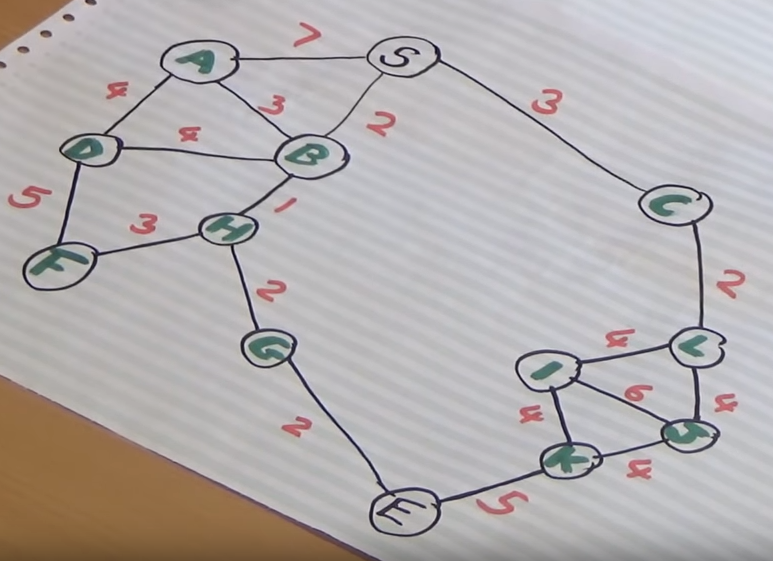 7
A
S
4
3
2
3
D
4
B
5
1
C
3
H
F
2
2
G
4
L
I
6
4
4
2
J
K
4
E
5